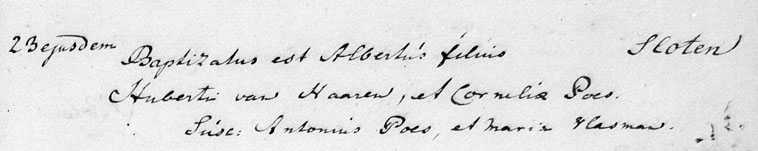 23 ejusdem Baptizatus est Albertus filius Sloten
Huberti van Haaren, et Corneliæ Poes.
Susc: Antonius Poes, et Maria Hasman.